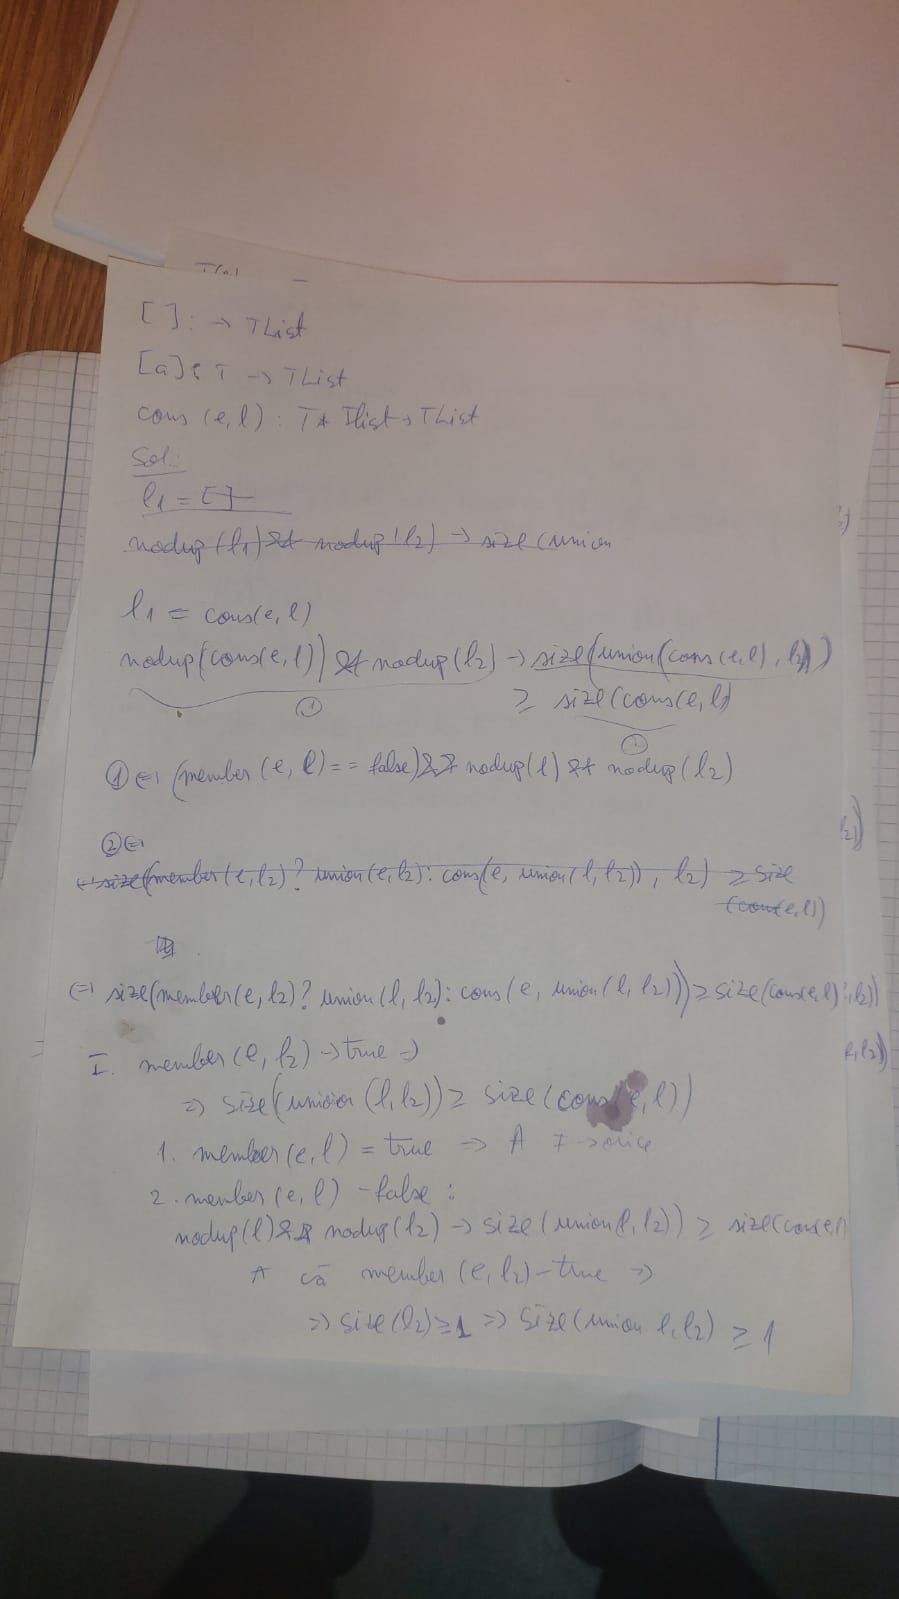 [ ] : → TList
[a] : T → TList
cons (e, l) : T * Tlist → TList
Sol:
l1 = [ ]
nodup (l1) && nodup (l2) → size (union
l1 = cons(e, l)
nodup(cons(e, l)) && nodup (l2) → size(union(cons(e, l), l2))
≥ size (cons(e, l)
① ⇔ (member (e, l) == false) && nodup(l) && nodup (l2)
② ⇔
size(member(e, l2) ? union(e, l2) : cons(e, union(l, l2)), l2) ≥ size
(cons(e, l))
⇔ size(member(e, l2) ? union(l, l2) : cons(e, union(l, l2))) ≥ size(cons(e, l) , l2))
I. member (e, l2) → true ⇒
⇒ size(union (l, l2)) ≥ size (cons(e, l))
1. member (e, l) = true ⇒ A
2. member (e, l) - false :
nodup(l) && nodup(l2) → size (union(l, l2)) ≥ size(cons(e, l)
A că member (e, l2) - true ⇒
⇒ size (l2) ≥ 1 ⇒ size (union l, l2) ≥ 1